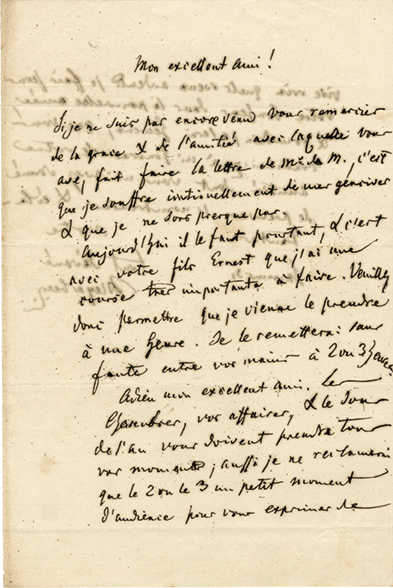 Mon excellent Ami!
Si je ne suis pas encore venu vous remercier
de la grace & de l'amitié avec laquelle vous
avez fait faire la lettre de Mr de M., c'est
que je souffre continuellement de mes gencives
& que je ne sors presque pas.
Aujourd'hui il le faut pourtant, & c'est
avec votre fils Ernest que j'ai une
course très importante à faire. Veuillez
donc permettre que je vienne le prendre
à une heure. Je le remettrai sans
faute entre vos mains à 2 ou 3 heures
Adieu mon excellent ami. Les
Chambres, vos affaires, & le Jour
de l'an vous doivent prendre tous
vos moments; aussi je ne réclamerai
que le 2 ou le 3 un petit moment
d'audience pour vous exprimer de